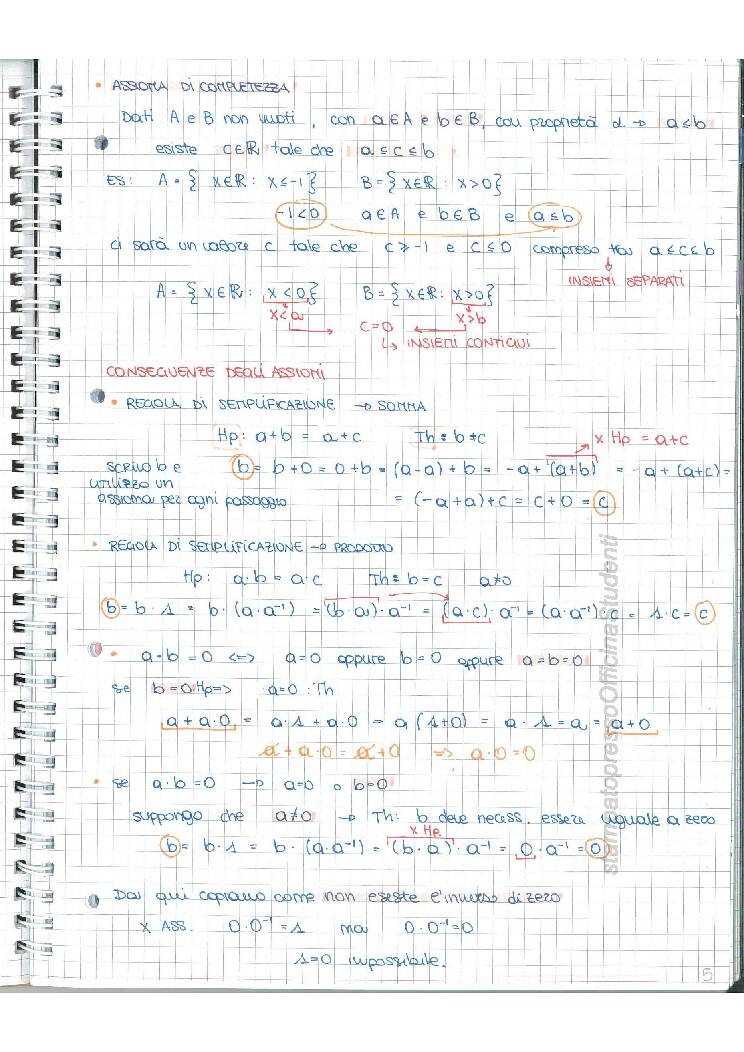 • ASSIOMA DI COMPLETEZZA
Dati A e B non vuoti, con a∈A e b∈B, con proprietà d → a≤b
esiste c∈ℝ tale che a≤c≤b
ES: A = { x∈ℝ: x≤-1 } B = { x∈ℝ: x>0 }
-1<0 a∈A e b∈B e a≤b
ci sarà un valore c tale che c≥-1 e c≤0 compreso tra a≤c≤b
INSIEMI SEPARATI
A = { x∈ℝ: x<0 } B = { x∈ℝ: x>0 }
x<a c=0 x>b
↳ INSIEMI CONTIGUI
CONSEGUENZE DEGLI ASSIOMI
• REGOLA DI SEMPLIFICAZIONE → SOMMA
Hp: a+b = a+c Th: b=c x Hp = a+c
scrivo b e b = b+0 = 0+b = (a-a)+b = -a+(a+b) = -a+(a+c) =
utilizzo un
assioma per ogni passaggio = (-a+a)+c = c+0 = c
• REGOLA DI SEMPLIFICAZIONE → PRODOTTO
Hp: a·b = a·c Th: b=c a≠0
b = b·1 = b·(a·a⁻¹) = (b·a)·a⁻¹ = (a·c)·a⁻¹ = (a·a⁻¹)·c = 1·c = c
• a·b=0 <=> a=0 oppure b=0 oppure a=b=0
se b=0 Hp => a=0 : Th
a+a·0 = a·1+a·0 = a(1+0) = a·1 = a = a+0
a+a·0 = a+0 => a·0=0
• se a·b=0 → a=0 o b=0
suppongo che a≠0 → Th: b deve necess. essere uguale a zero
x Hp.
b = b·1 = b·(a·a⁻¹) = (b·a)·a⁻¹ = 0·a⁻¹ = 0
Da qui capiamo come non esiste l'inverso di zero
x ASS. 0·0⁻¹=1 ma 0·0⁻¹=0
1=0 impossibile.
5
stampatopressoOfficinaStudenti